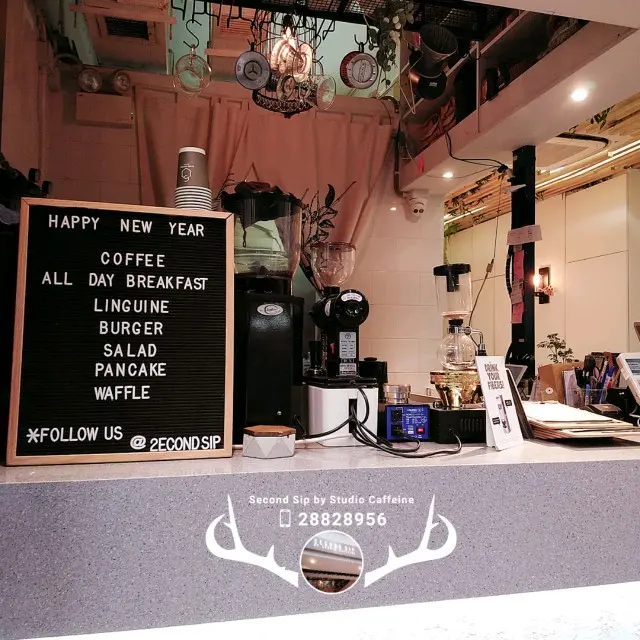 HAPPY NEW YEAR
COFFEE
ALL DAY BREAKFAST
LINGUINE
BURGER
SALAD
PANCAKE
WAFFLE
*FOLLOW US @ 2ECONDSIP
DRINK
YOUR
Second Sip by Studio Caffeine
28828956